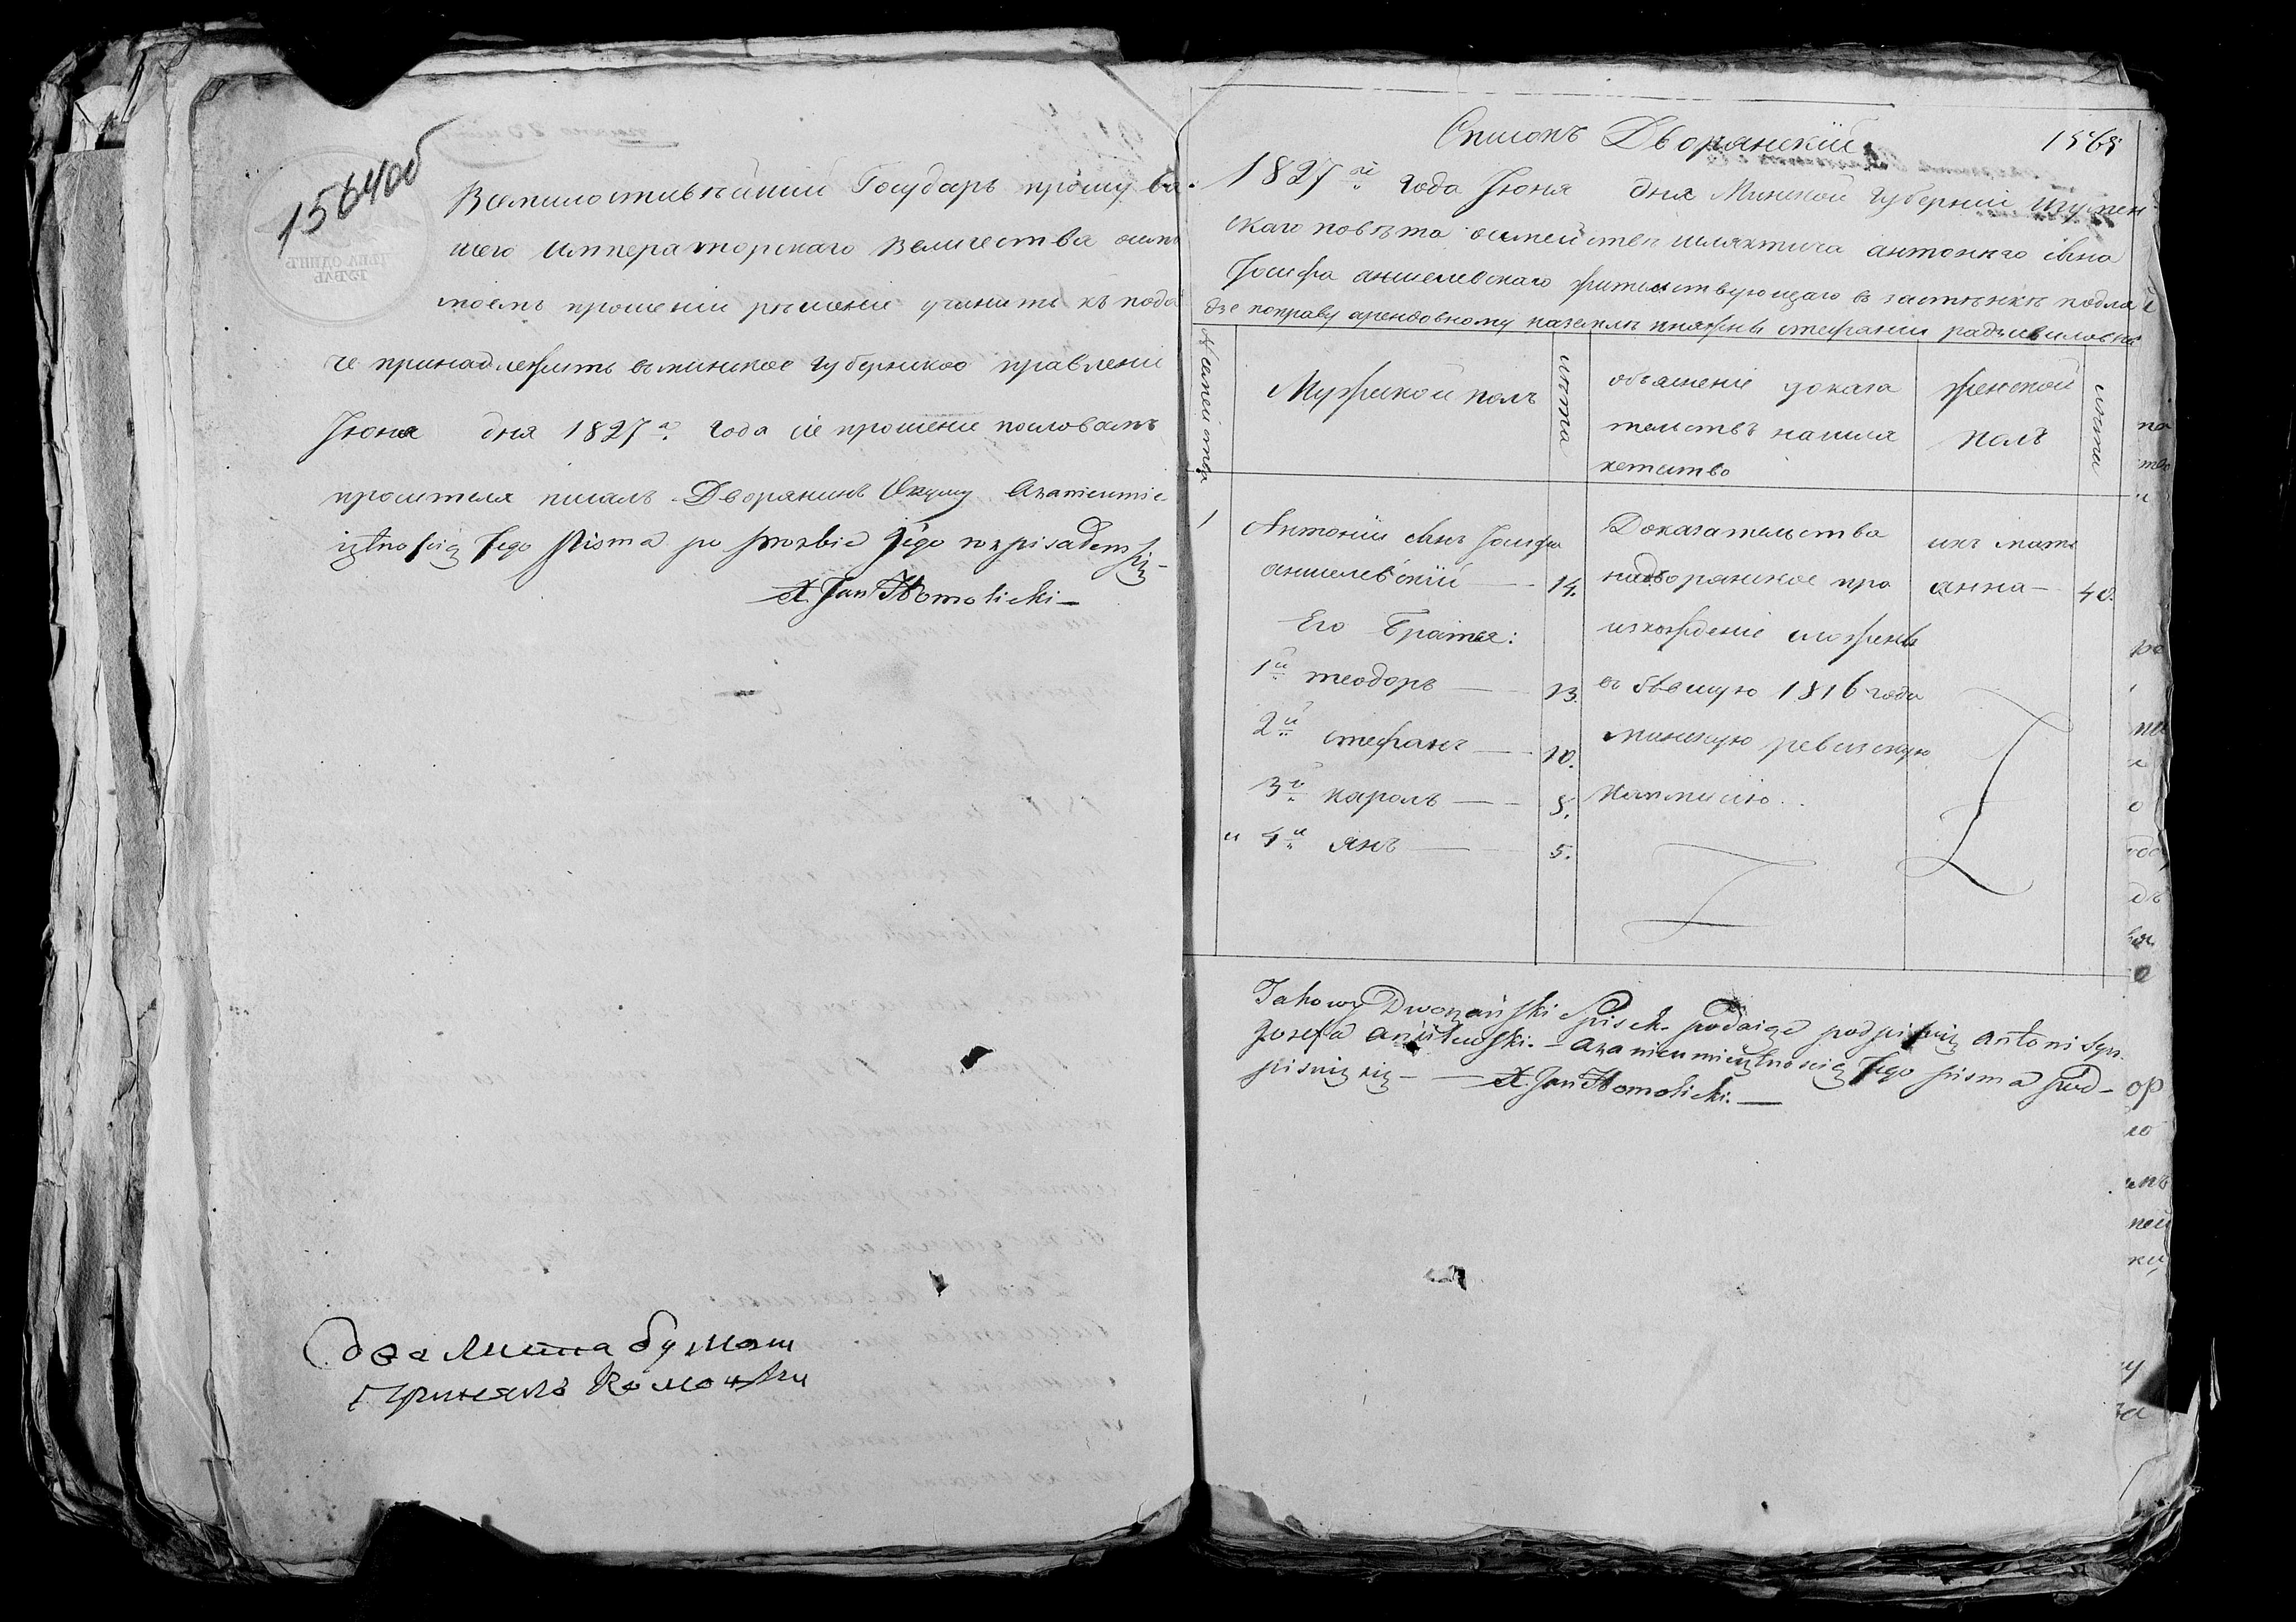 1564об
Всемилостивѣйший Государь прошу ва
шего Императорскаго Величества о семъ
моемъ прошении решение учинить къ пода
че принадлежитъ въ минское губернское правление
Июня дня 1827го года сие прошение пословамъ
просителя писалъ Дворянинъ Azanieumie
iętnością tego Pisma po proźbie jego rozpisałem się
X. Jan Homolicki
два листа бумаги
Принялъ
Списокъ Дворянский 1565
1827го года Июня дня Минской губернии Игумен
скаго повѣта о семействѣ шляхтича антонего сына
Иосифа анцелевскаго жительствующаго в застѣнкѣ подла
дзе по праву арендовному на землѣ княжны стефании радзивиловны
№ семейства
Мужской полъ
лѣта
объяснение доказа
тельствъ на шля
хетство
женской
полъ
лѣта
1
Антоний сынъ Иосифа
анцелевский — 14.
Его Братья:
1й теодоръ — 13.
2й стефанъ — 10.
3й кароль — 5.
и 4й янъ — 5.
Доказательства
на дворянское про
изхождение сложены
въ бывшую 1816 года
минскую ревизскую
коммисию.
ихъ мать
анна — 40.
Takowy Dworzański Spisek podaiąc podpisuię Antoni Syn
Jozefa — azanieumieiętnością tego pisma pod-
pisuię się — X. Jan Homolicki. —